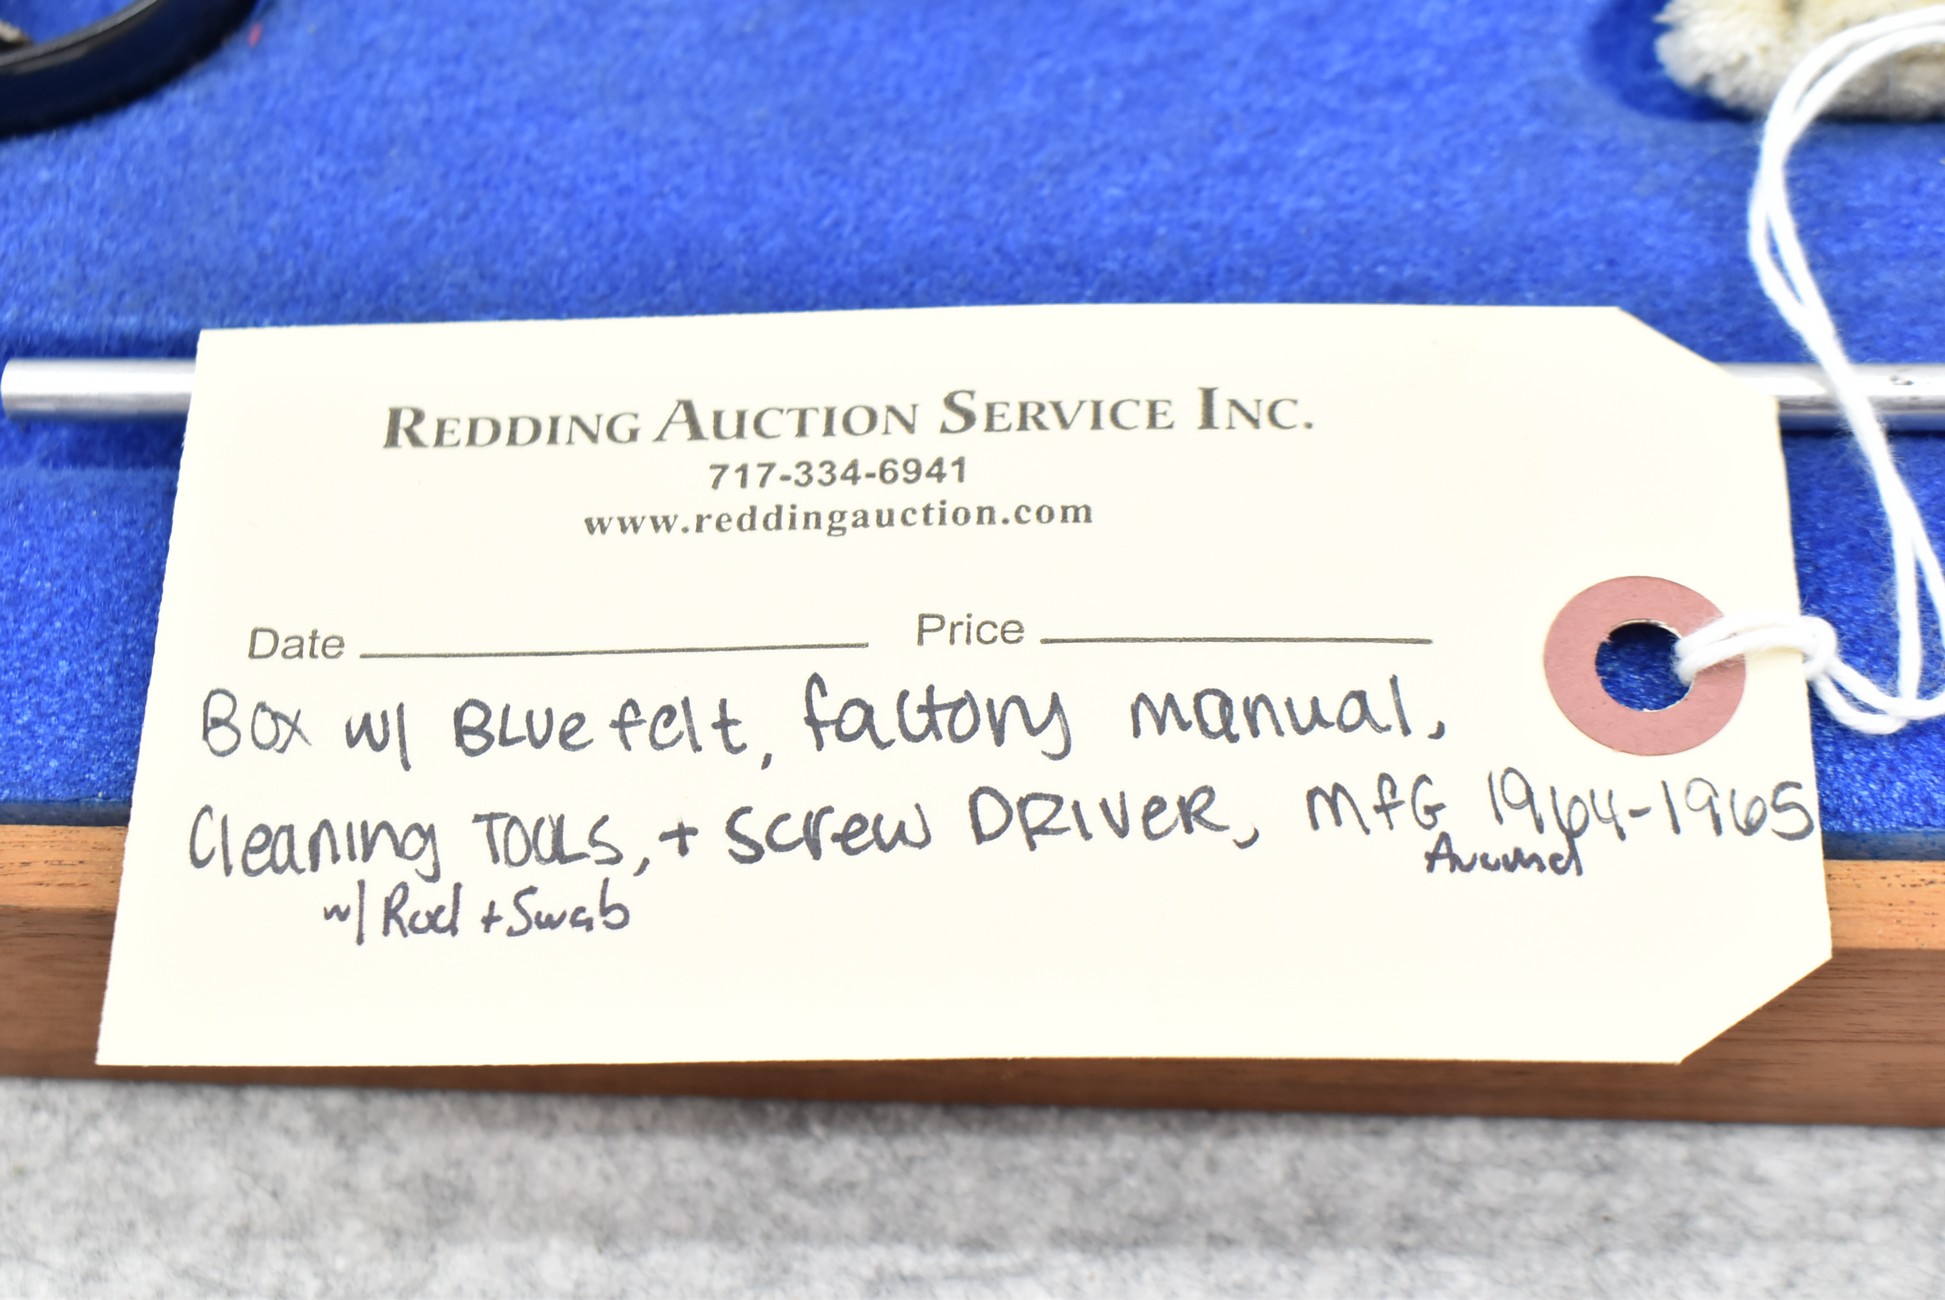 REDDING AUCTION SERVICE INC.
717-334-6941
www.reddingauction.com
Date Price
Box w/ BLUE felt, factory manual,
Cleaning TOOLS, + Screw DRIVER, MfG 1964-1965
Around
w/ Rod + Swab